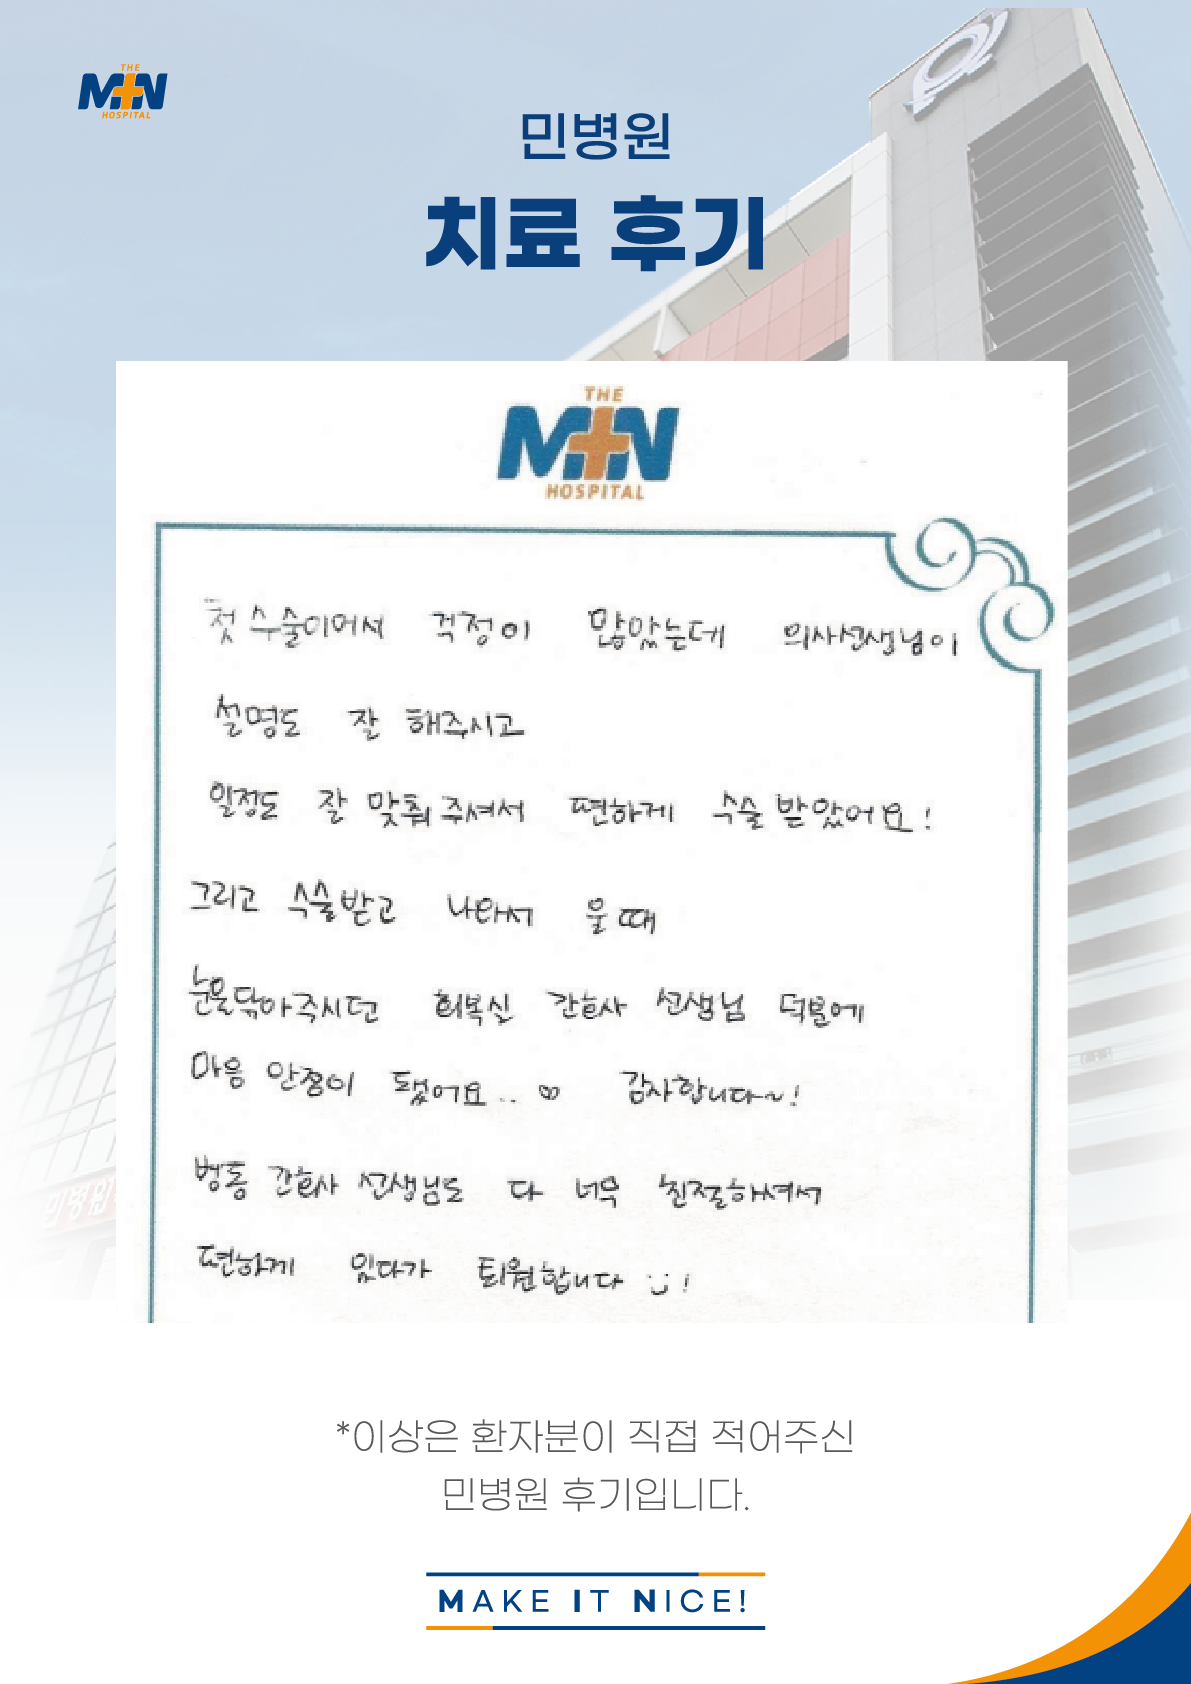 THE
MIN
HOSPITAL
민병원
치료 후기
THE
MIN
HOSPITAL
첫 수술이어서 걱정이 많았는데 의사선생님이
설명도 잘 해주시고
일정도 잘 맞춰 주셔서 편하게 수술 받았어요!
그리고 수술받고 나와서 울 때
눈물닦아주시던 회복실 간호사 선생님 덕분에
마음 안정이 됐어요.. ♡ 감사합니다~!
병동 간호사 선생님도 다 너무 친절하셔서
편하게 있다가 퇴원합니다 !
민병원
*이상은 환자분이 직접 적어주신
민병원 후기입니다.
MAKE IT NICE!